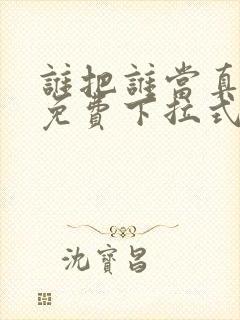 誰把誰當真
免費下拉式
沈寶昌